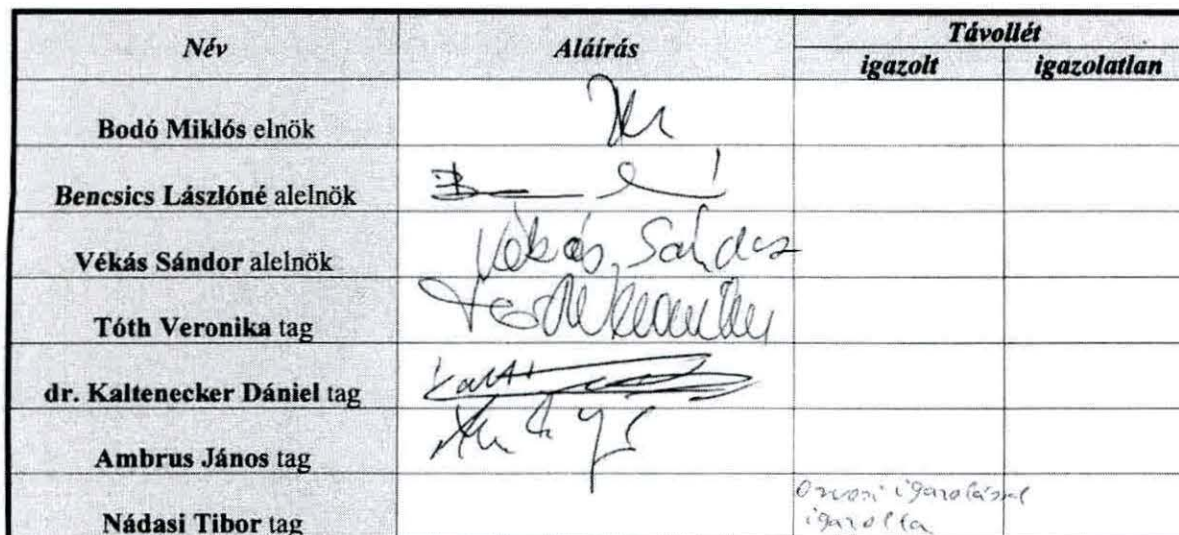 Név Aláírás Távollét
igazolt igazolatlan
Bodó Miklós elnök
Bencsics Lászlóné alelnök
Vékás Sándor alelnök Vékás Sándor
Tóth Veronika tag
dr. Kaltenecker Dániel tag
Ambrus János tag
Nádasi Tibor tag Orvosi igazolással
igazolta